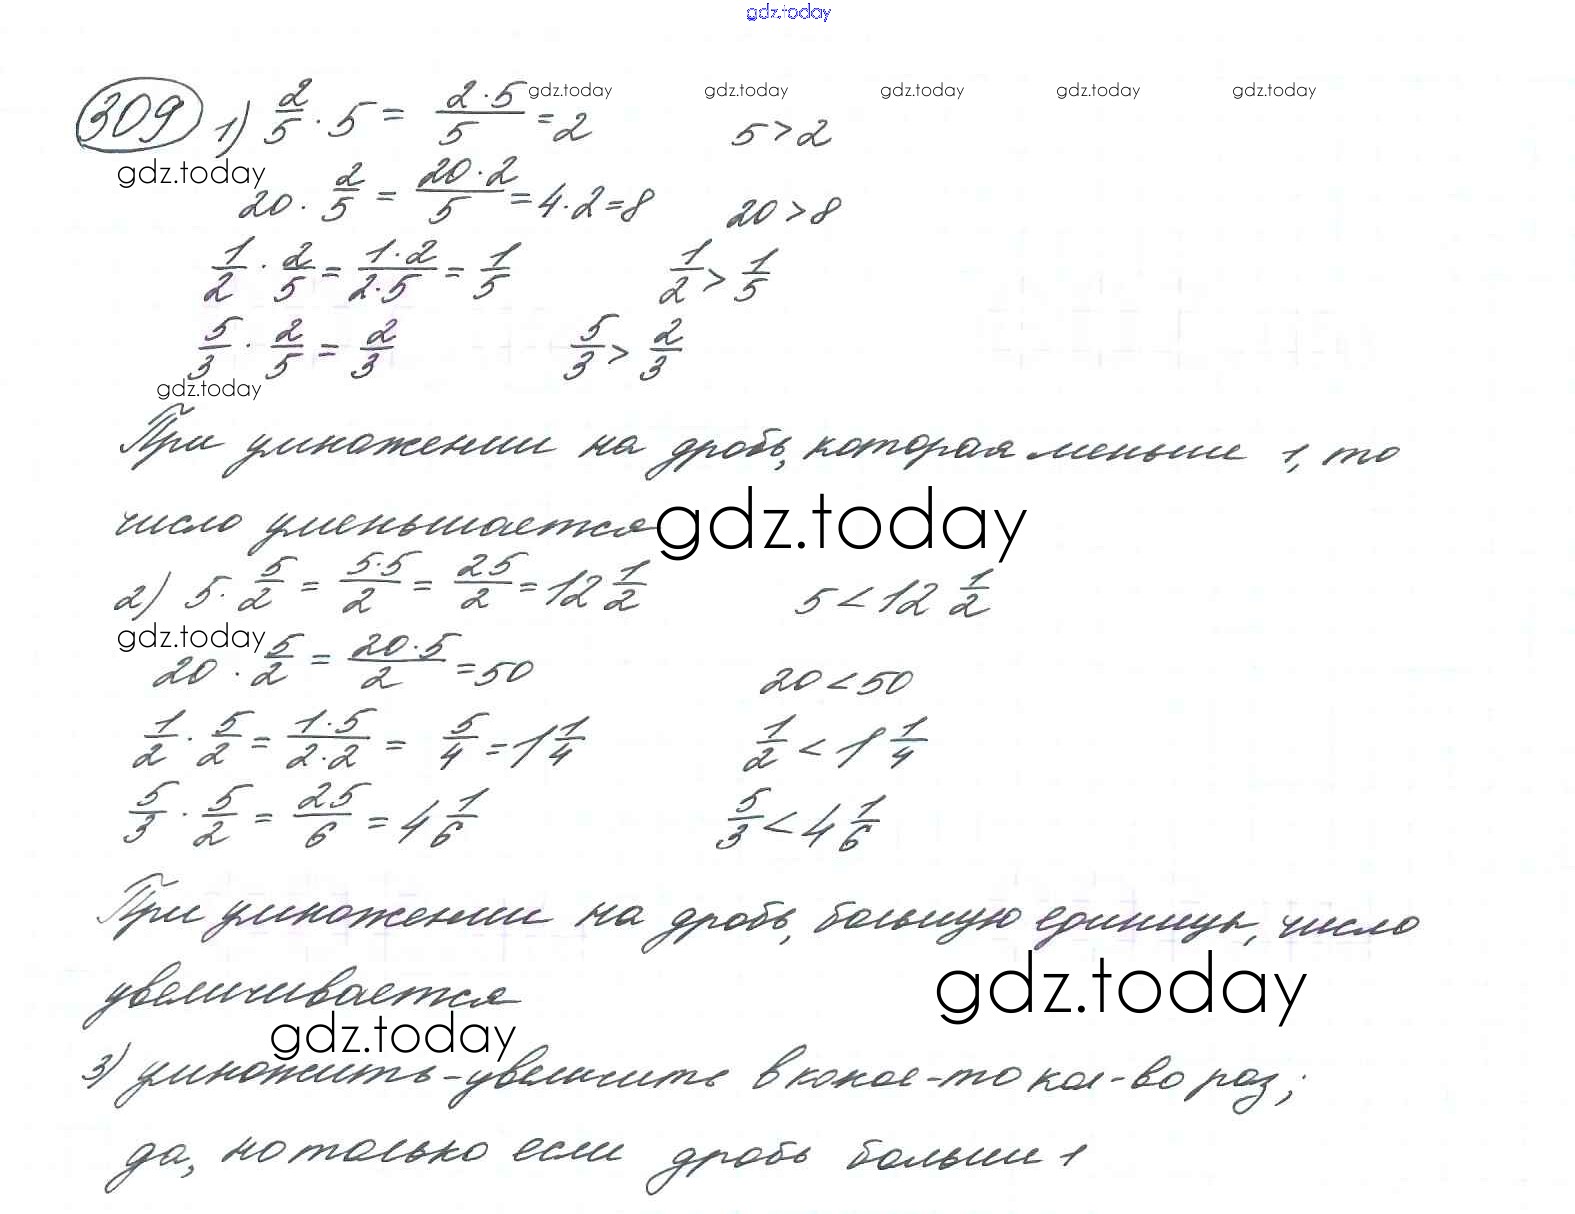 gdz.today
309 1) 2/5 · 5 = 2·5/5 = 2 5 > 2
gdz.today gdz.today gdz.today gdz.today gdz.today
gdz.today
20 · 2/5 = 20·2/5 = 4·2 = 8 20 > 8
1/2 · 2/5 = 1·2/2·5 = 1/5 1/2 > 1/5
5/3 · 2/5 = 2/3 5/3 > 2/3
gdz.today
При умножении на дробь, которая меньше 1, то
число уменьшается
gdz.today
2) 5 · 5/2 = 5·5/2 = 25/2 = 12 1/2 5 < 12 1/2
gdz.today
20 · 5/2 = 20·5/2 = 50 20 < 50
1/2 · 5/2 = 1·5/2·2 = 5/4 = 1 1/4 1/2 < 1 1/4
5/3 · 5/2 = 25/6 = 4 1/6 5/3 < 4 1/6
При умножении на дробь, большую единицы, число
gdz.today
увеличивается
gdz.today
3) умножить - увеличить в какое-то кол-во раз;
да, но только если дробь больше 1